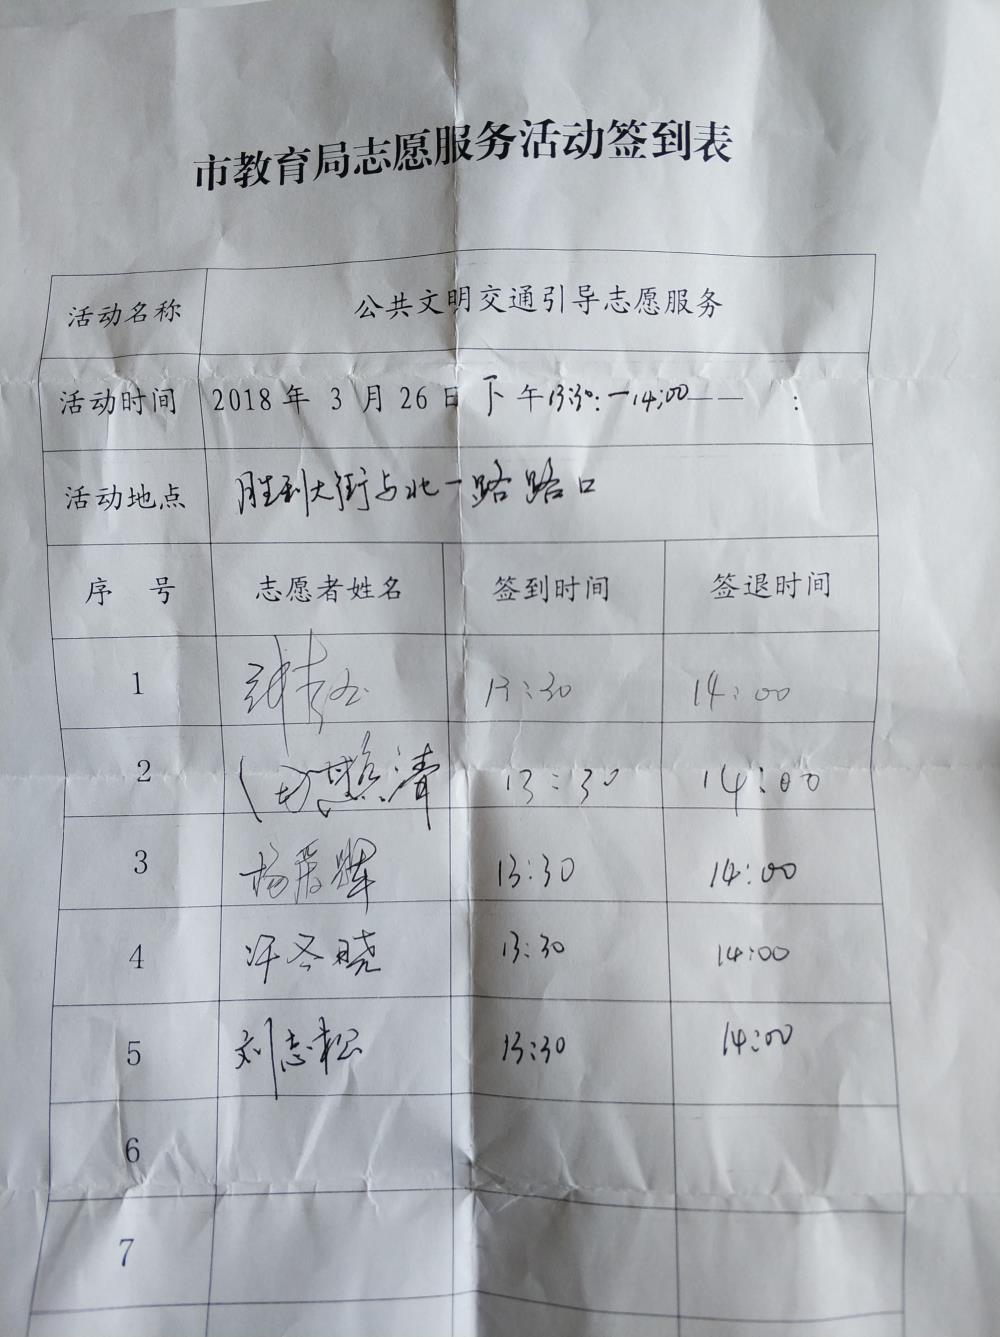 市教育局志愿服务活动签到表
活动名称 公共文明交通引导志愿服务
活动时间 2018 年 3 月 26 日 下 午 13:30:—14:00—— :
活动地点 胜利大街与北一路路口
序 号 志愿者姓名 签到时间 签退时间
1 13:30 14:00
2 13:30 14:00
3 杨爱辉 13:30 14:00
4 冬晓 13:30 14:00
5 刘志松 13:30 14:00
6
7